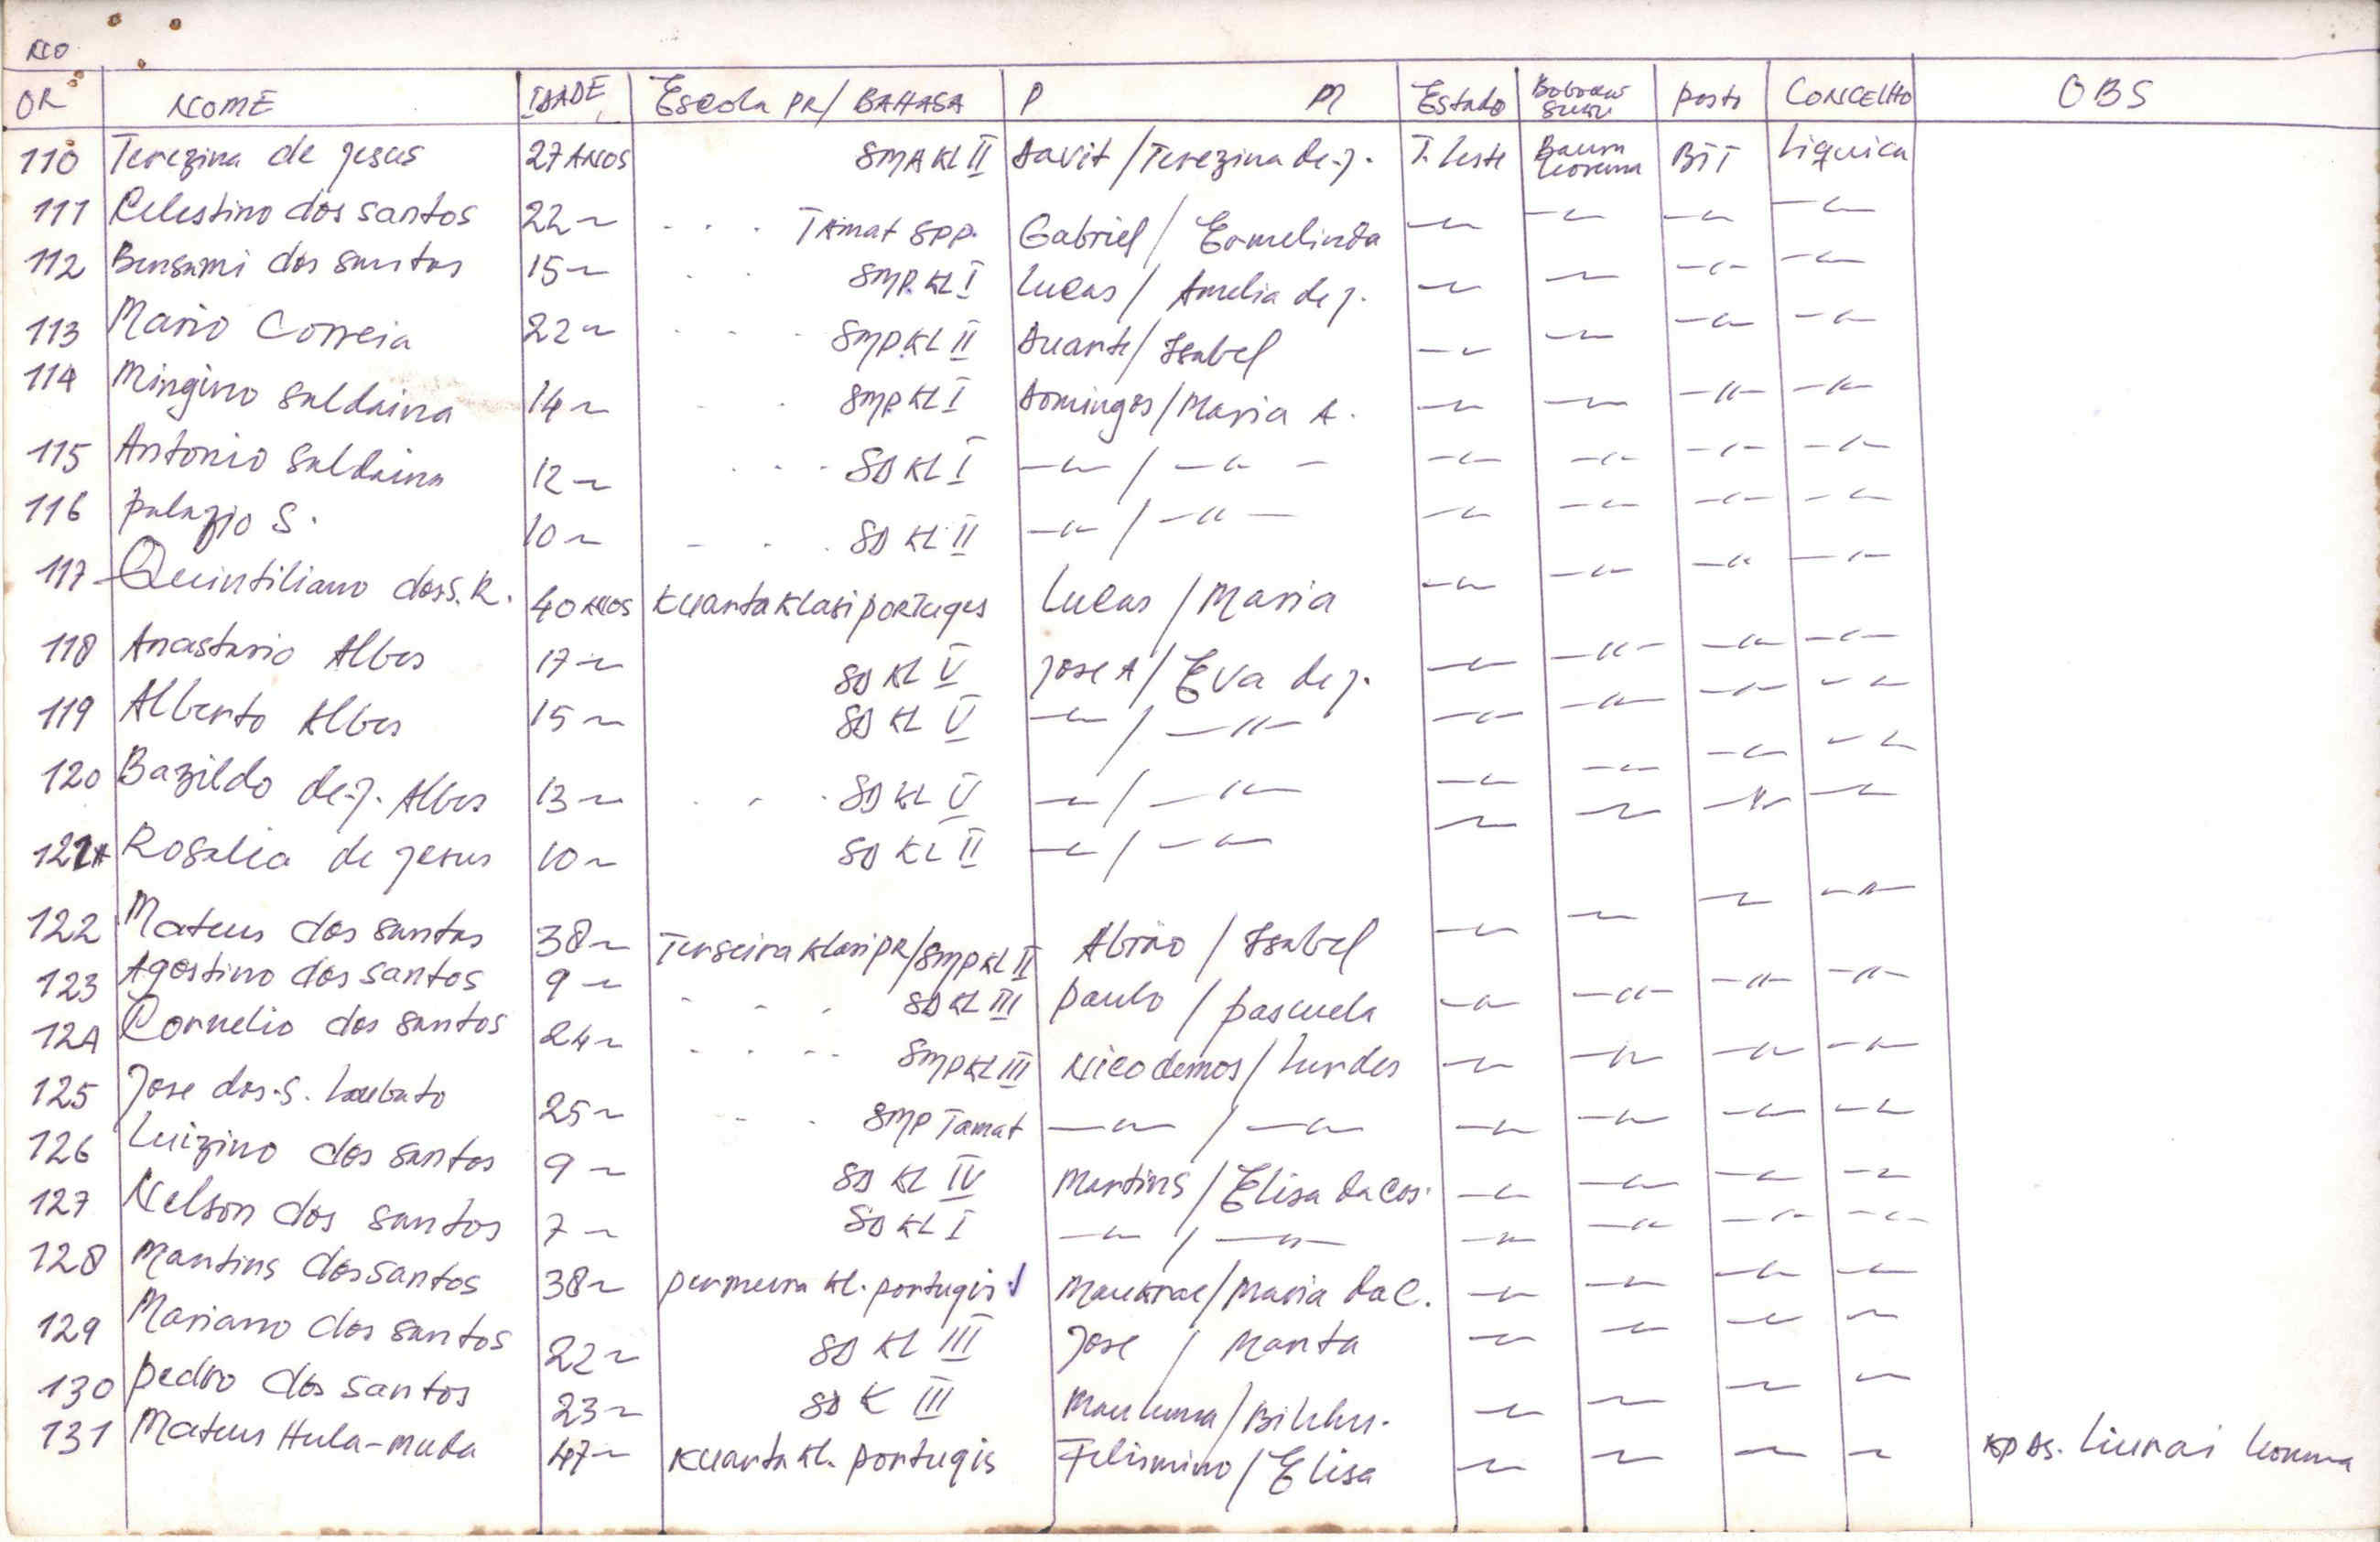 NO
OR NOME IDADE Escola PR/ BAHASA P M Estado Suku Posto CONCELHO OBS
110 Terezina de Jesus 27 ANOS SMA KL II Davit / Terezina de J. T. Leste Leorema BTT Liquica
111 Celestino dos santos 22 ~ . . . TAmat SPP. Gabriel / Ermelinda —〃— —〃— —〃— —〃—
112 dos santos 15 ~ . . SMP. KL I Lucas / Amelia de J. —〃— —〃— —〃— —〃—
113 Mario Correia 22 ~ . . . SMP. KL II Duarte / Isabel —〃— —〃— —〃— —〃—
114 Mingino saldaina 14 ~ . . SMP KL I Domingos / Maria A. —〃— —〃— —〃— —〃—
115 Antonio saldaina 12 ~ . . . SD KL I —〃— / —〃— —〃— —〃— —〃— —〃—
116 S. 10 ~ . . . SD KL II —〃— / —〃— —〃— —〃— —〃— —〃—
117 Quintiliano dos S. R. 40 ANOS Kuarta Klasi portuges Lucas / Maria —〃— —〃— —〃— —〃—
118 Anastasio Albes 17 ~ SD KL V Jose A / Eva de J. —〃— —〃— —〃— —〃—
119 Alberto Albes 15 ~ SD KL V —〃— / —〃— —〃— —〃— —〃— —〃—
120 Bazildo de J. Albes 13 ~ . . . SD KL V —〃— / —〃— —〃— —〃— —〃— —〃—
121 Rosalia de Jesus 10 ~ SD KL II —〃— / —〃— —〃— —〃— —〃— —〃—
122 Mateus dos santos 38 ~ Terseira Klasi PR/SMP KL II Abrao / Isabel —〃— —〃— —〃— —〃—
123 Agostino dos santos 9 ~ . . . SD KL III Paulo / Pascuela —〃— —〃— —〃— —〃—
124 Cornelio dos santos 24 ~ . . . . SMP KL III Nicodemos / Lurdes —〃— —〃— —〃— —〃—
125 Jose dos. S. Loubato 25 ~ . . SMP Tamat —〃— / —〃— —〃— —〃— —〃— —〃—
126 Luizino dos santos 9 ~ SD KL IV Martins / Elisa da Cos. —〃— —〃— —〃— —〃—
127 Nelson dos santos 7 ~ SD KL I —〃— / —〃— —〃— —〃— —〃— —〃—
128 Martins dos santos 38 ~ permeira Kl. portugis / Maria da C. —〃— —〃— —〃— —〃—
129 Mariano dos santos 22 ~ SD KL III Jose / Marta —〃— —〃— —〃— —〃—
130 Pedro dos santos 23 ~ SD K III —〃— —〃— —〃— —〃—
131 Mateus Hula-muda 47 ~ Kuarta Kl. portugis Felismino / Elisa —〃— —〃— —〃— —〃— Liurai